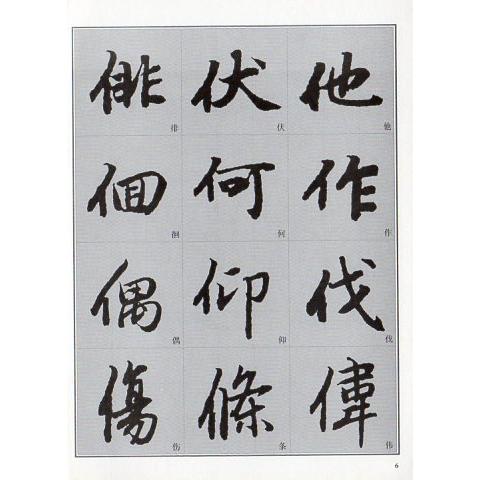 他作伐偉
他作伐伟
伏何仰條
伏何仰条
俳佪偶傷
偶伤
6